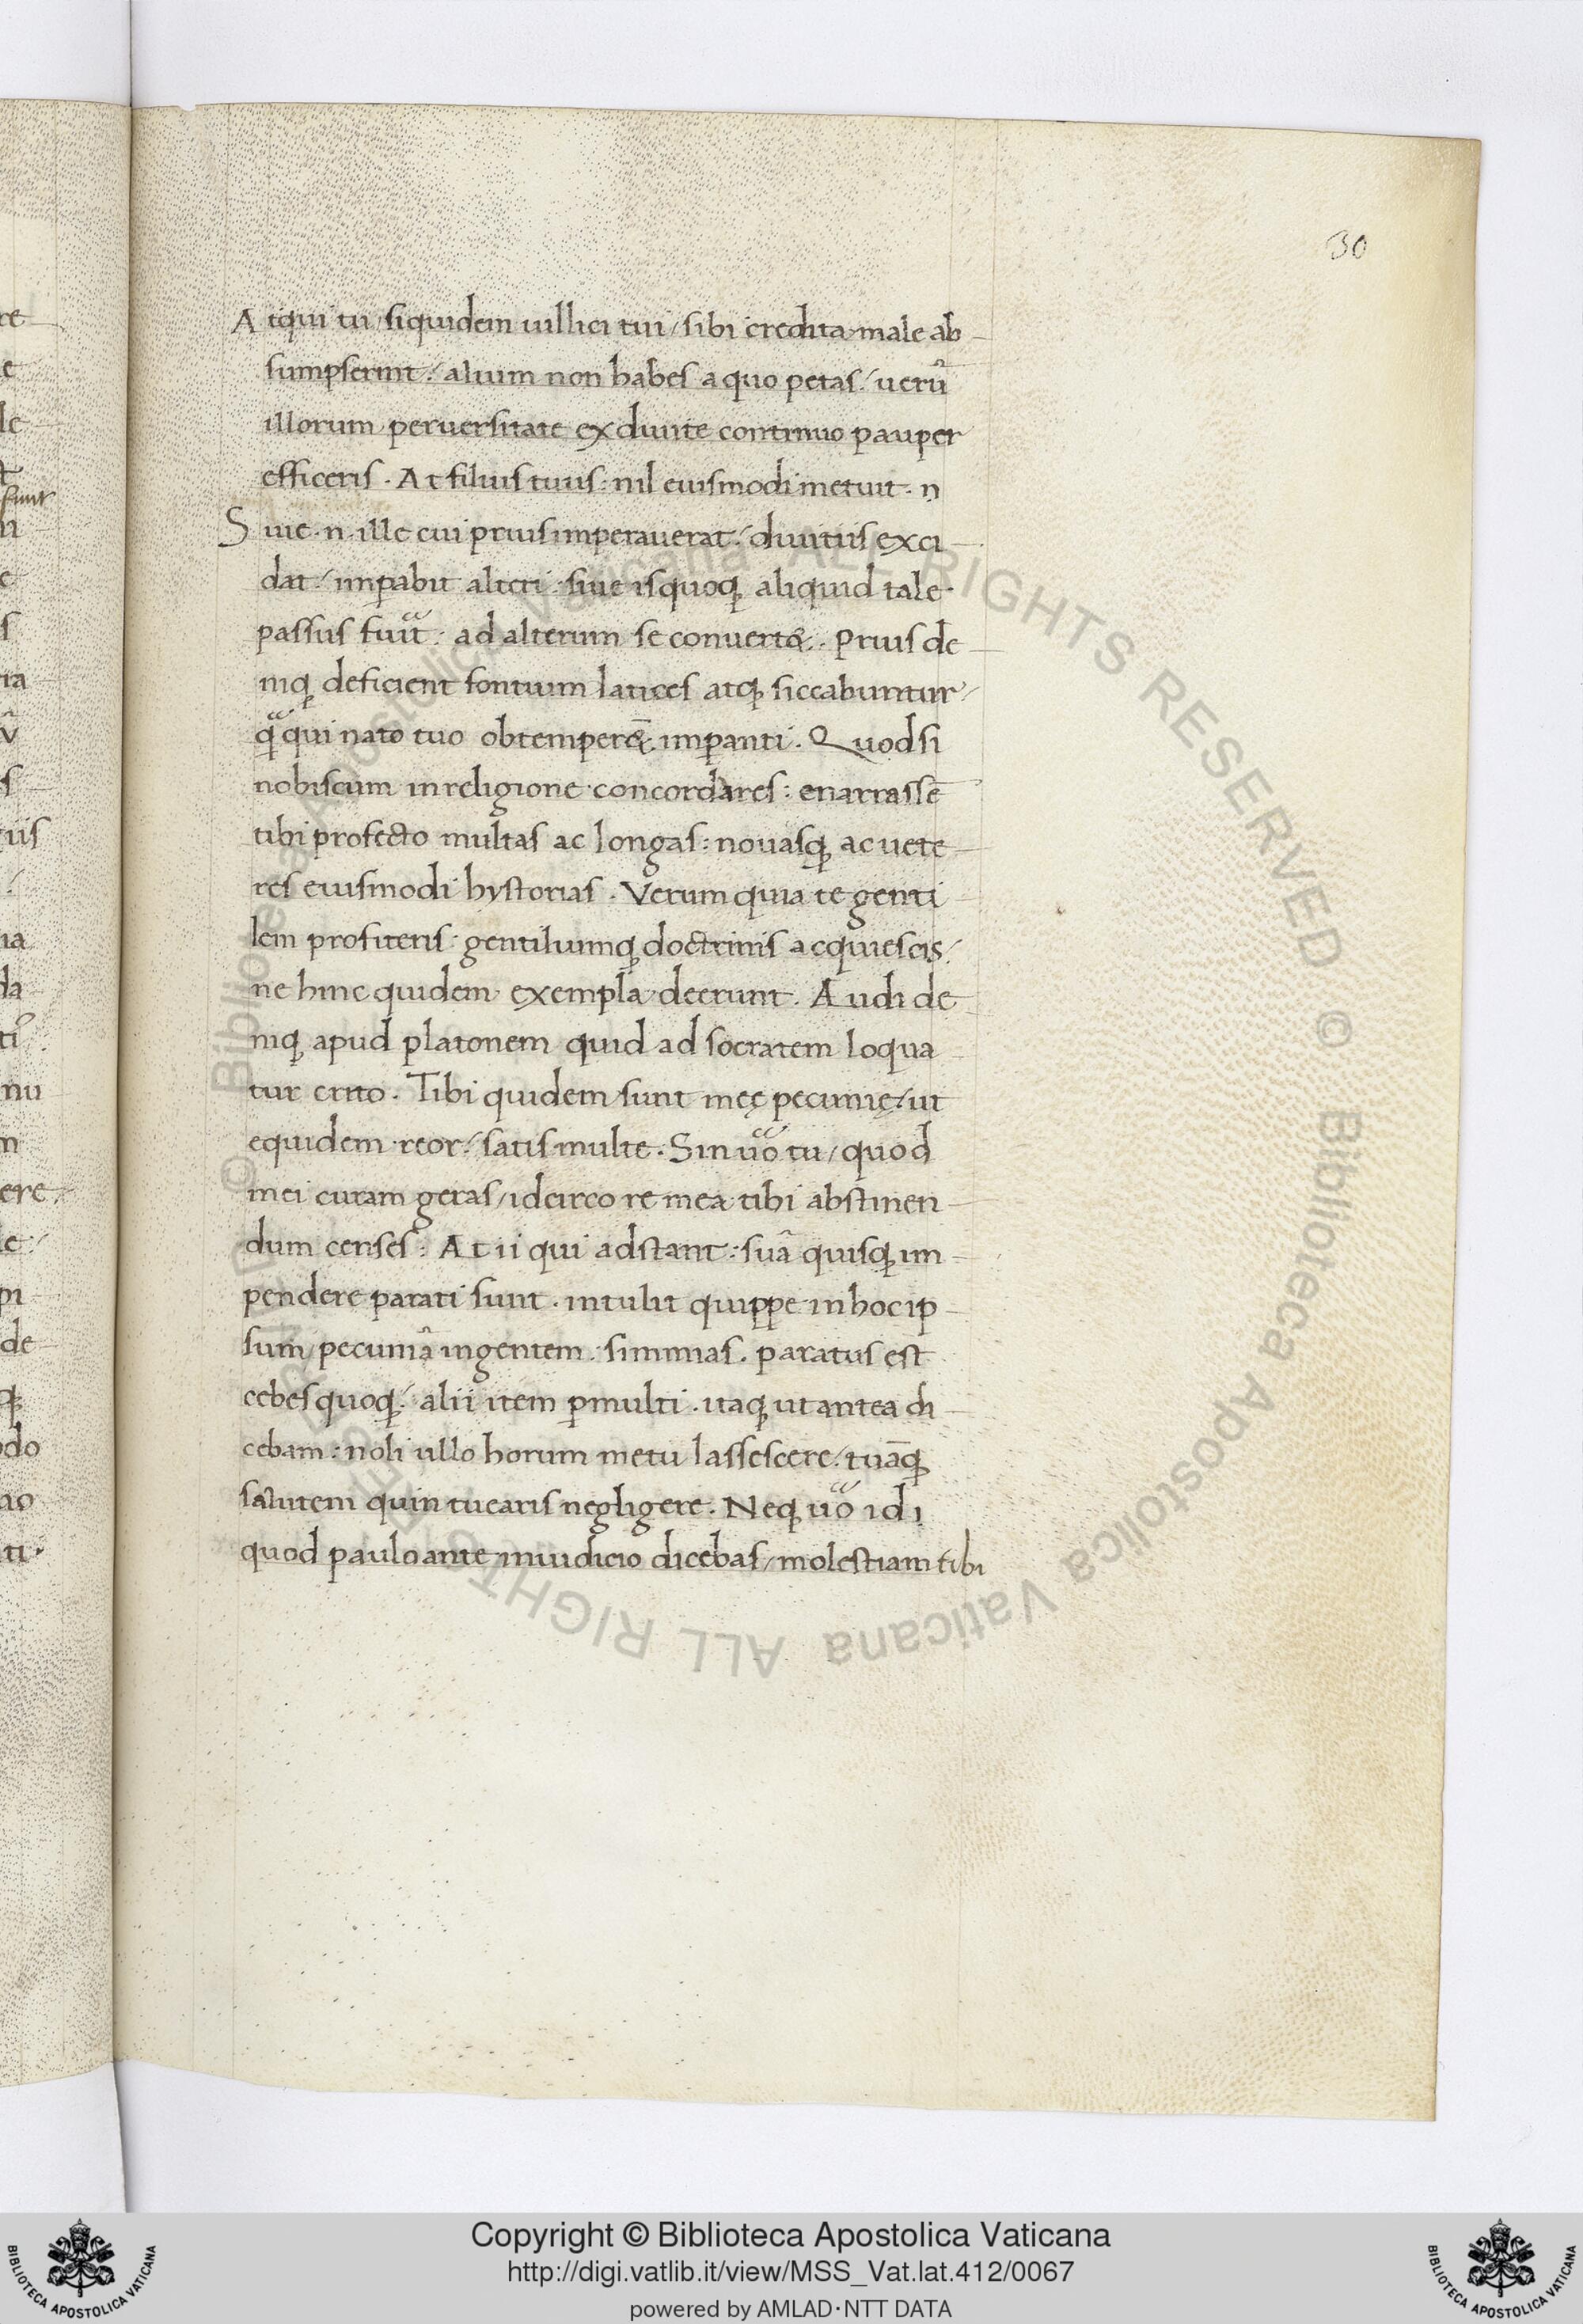 30
Atqui tu / siquidem uillici tui / sibi credita male ab
sumpserint / alium non habes a quo petas / uerũ
illorum peruersitate ex diuite continuo pauper
efficeris. At filius tuus: nil eiusmodi metuit. n
Siue .n. ille cui prius imperauerat / diuitiis exci
dat / imꝑabit alteri: siue is quoqꝫ aliquid tale
passus fuit: ad alterum se conuertet. Prius de
niqꝫ deficient fontium latices atqꝫ siccabuntur /
qui nato tuo obtemperet imꝑanti. Quod si
nobiscum in religione concordares: enarrassē
tibi profecto multas ac longas: nouasqꝫ ac uete
res eiusmodi hystorias. Verum quia te genti
lem profiteris: gentiliumqꝫ doctrinis acquiescis /
ne hinc quidem exempla deerunt. Audi de
niqꝫ apud platonem quid ad socratem loqua
tur crito. Tibi quidem sunt meę pecunię / ut
equidem reor / satis multe. Sin uo tu / quod
mei curam geras / idcirco re mea tibi abstinen
dum censes: At ii qui adstant: suã quisqꝫ im
pendere parati sunt. intulit quippe in hoc ip
sum / pecuniã ingentem: simmias. paratus est
cebes quoqꝫ / alii item ꝑmulti. itaqꝫ ut antea di
cebam: noli ullo horum metu lassescere / tuāqꝫ
salutem quin tuearis negligere. Neqꝫ uo id
quod paulo ante in iudicio dicebas / molestiam tibi
Copyright © Biblioteca Apostolica Vaticana
http://digi.vatlib.it/view/MSS_Vat.lat.412/0067
powered by AMLAD·NTT DATA